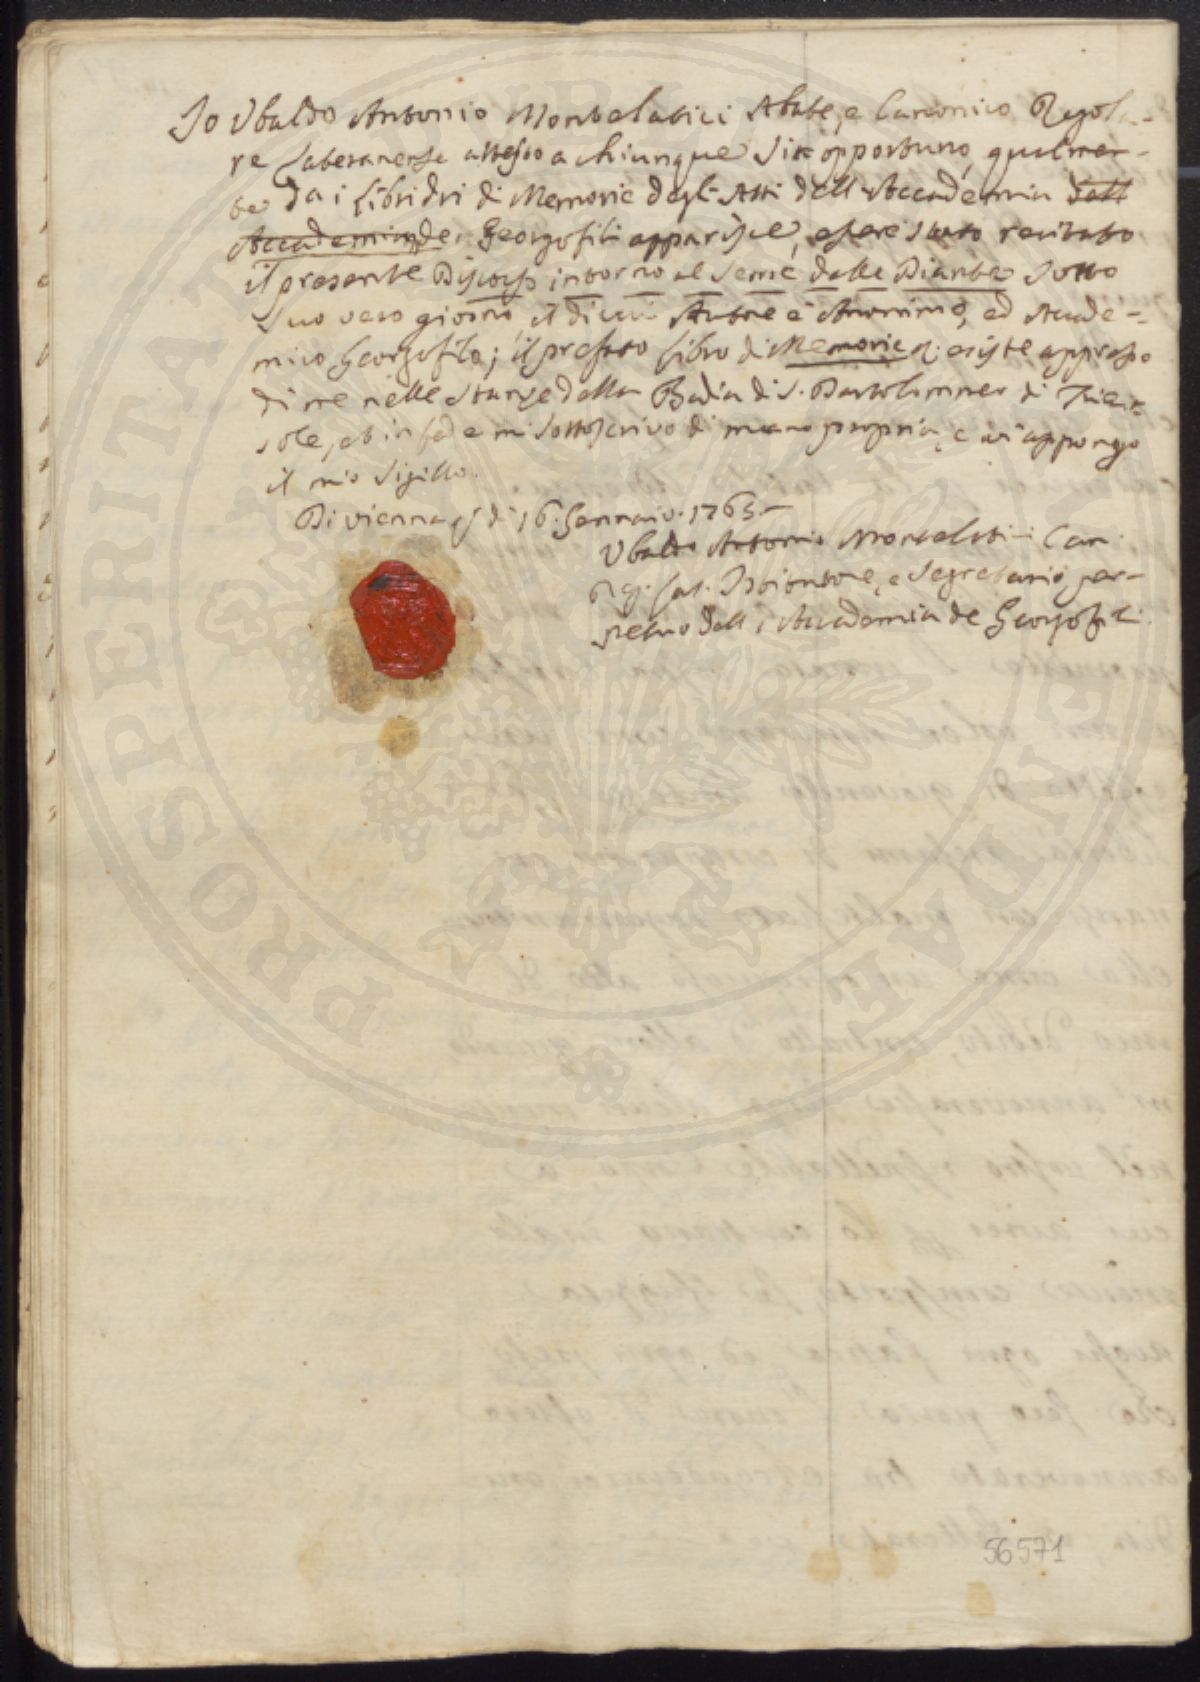 Io Ubaldo Antonio Montelatici Abate, e Canonico Regola-
re Lateranense attesto a chiunque sia opportuno, qualmen-
te da i Libri di Memorie degli Atti dell'Accademia dell
Accademia de Georgofili apparisce, essere stato recitato
il presente Discorso intorno al Seme delle Piante sotto
suo vero giorno, il di cui Autore è Anonimo, ed Accade-
mico Georgofilo; il prefato Libro di Memorie esiste appresso
di me nelle stanze della Badia di S. Bartolommeo di Fie-
sole, et in fede mi sottoscrivo di mano propria, e vi appongo
il mio Sigillo.
Di Vienna di 16. Gennaio. 1763.
Ubaldo Antonio Montelatici Can.
Reg. Lat. Istitutore, e Segretario per-
petuo dell'Accademia de Georgofili.
56571
PROSPERITATI PUBLICAE AUGENDAE